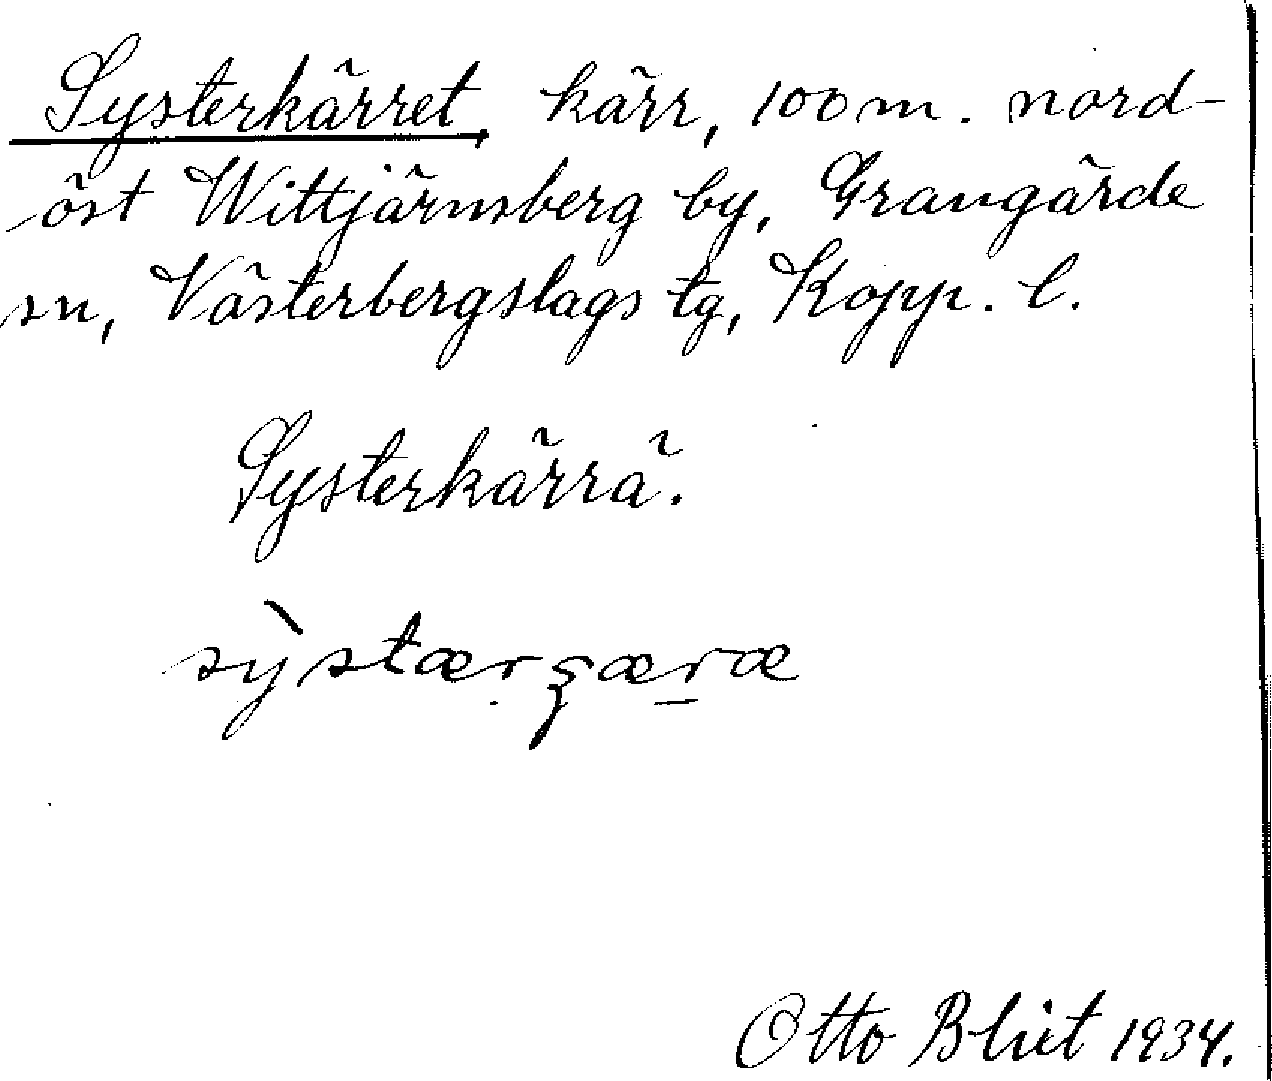 Systerkärret, kärr, 100 m. nord-
öst Wittjärnsberg by, Grangärde
sn, Västerbergslags tg, Kopp. l.
Systerkärrä.
sỳstærʂæræ
Otto Blixt 1934.